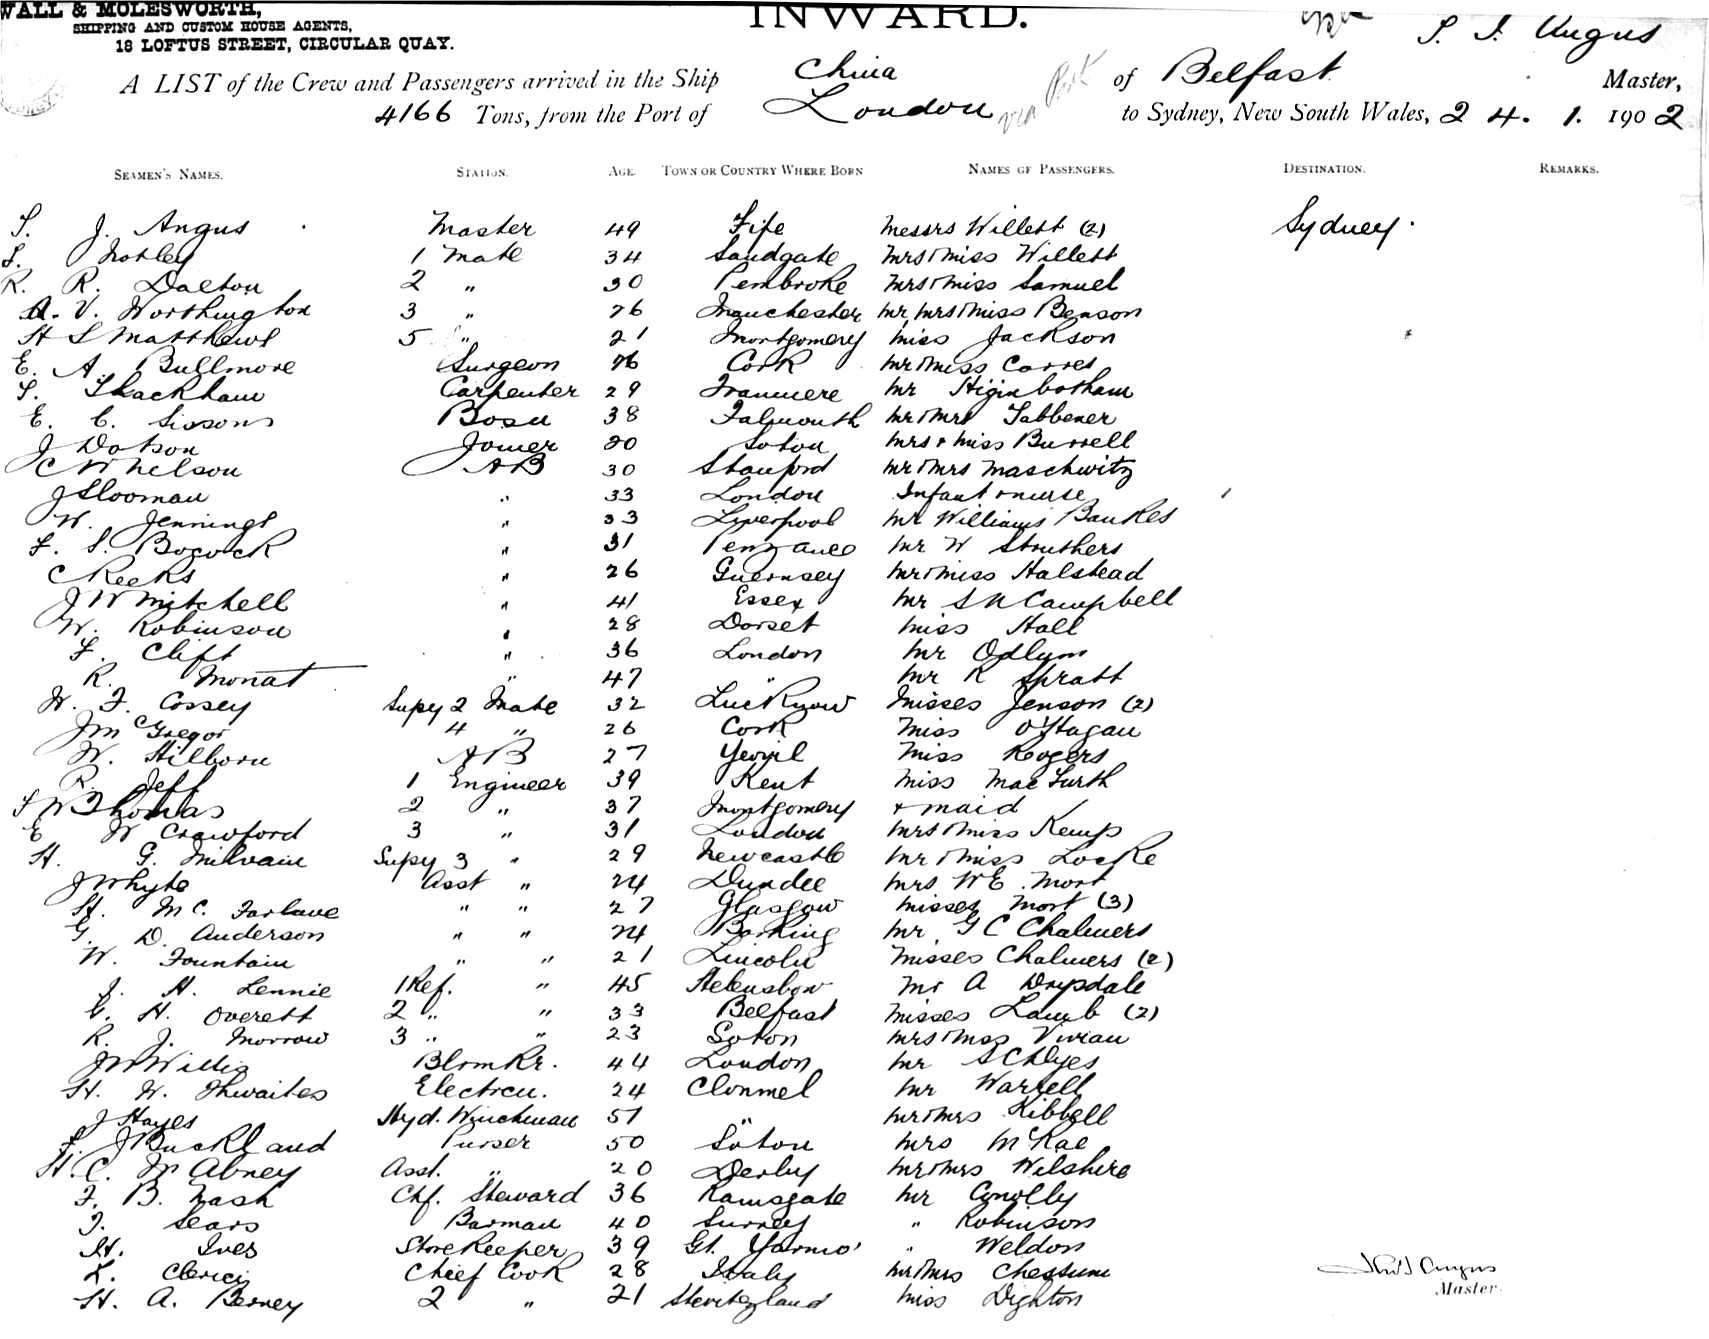 WALL & MOLESWORTH,
SHIPPING AND CUSTOM HOUSE AGENTS,
18 LOFTUS STREET, CIRCULAR QUAY.
INWARD.
S. J. Angus
A LIST of the Crew and Passengers arrived in the Ship China of Belfast Master,
4166 Tons, from the Port of London via to Sydney, New South Wales, 24. 1. 1902
SEAMEN'S NAMES. STATION. AGE. TOWN OR COUNTRY WHERE BORN NAMES OF PASSENGERS. DESTINATION. REMARKS.
S. J. Angus Master 49 Fife Messrs Willett (2) Sydney.
S. Notley 1 Mate 34 Sandgate Mrs & Miss Willett
R. R. Dalton 2 " 30 Pembroke Mrs & Miss Samuel
A. V. Worthington 3 " 26 Manchester Mr, Mrs & Miss Benson
H S Matthews 5 " 21 Montgomery Miss Jackson
E. A. Bullmore Surgeon 26 Cork Mr & Miss Carres
T. Thackham Carpenter 29 Tranmere Mr Higinbotham
E. C. Sissons Bosn 38 Falmouth Mr & Mrs Tabbener
J Dotson Joiner 20 Soton Mrs & Miss Burrell
C W Nelson AB 30 Stanford Mr & Mrs Maschwitz
J Slooman " 33 London Infant & nurse
W. Jennings " 33 Liverpool Mr Williams Bankes
F. S. Bocock " 31 Penzance Mr W Struthers
C Reeks " 26 Guernsey Mr & Miss Halstead
J W Mitchell " 41 Essex Mr S N Campbell
W. Robinson " 28 Dorset Miss Hall
F. Clift " 36 London Mr Odlum
R. Monat " 47 " Mr R Spratt
W. F. Cossey Supy 2 Mate 32 Lucknow Misses Jenson (2)
J McGregor 4 " 26 Cork Miss O'Hagan
W. Hilborn AB 27 Yeovil Miss Rogers
R. Jeff 1 Engineer 39 Kent Miss MacTurth
S W Thomas 2 " 37 Montgomery & maid
E W Crawford 3 " 31 London Mrs & Miss Kemp
H. G. Milvain Supy 3 " 29 Newcastle Mr & Miss Locke
J Whyte Asst " 24 Dundee Mrs W E Mort
H. McFarlane " " 27 Glasgow Misses Mort (3)
G. D. Anderson " " 24 Barking Mr G C Chalmers
W. Fountain " " 21 Lincoln Misses Chalmers (2)
J. H. Lennie 1 Ref. " 45 Helensboro Mr A Drysdale
E. H. Overett 2 " " 33 Belfast Misses Lamb (2)
R. J. Morrow 3 " " 23 Soton Mrs & Miss Vivian
J W Willis Blrmkr. 44 London Mr S C Dyes
H. W. Thwaites Electrcn. 24 Clonmel Mr Warrell
J Hayes Hyd. Winchman 51 " Mr & Mrs Kibbell
F. J Buckland Purser 50 Soton Mrs McRae
H. C. W Abney Asst. " 20 Derby Mr & Mrs Wilshire
F. B. Nash Chf. Steward 36 Ramsgate Mr Conolly
J. Sears Barman 40 Surrey " Robinson
H. Ives Storekeeper 39 Gt. Yarmo' " Weldon
L. Clerici Chief Cook 28 Italy Mr & Mrs Chessum
H. A. Berney 2 " 21 Miss Dighton
Angus
Master.